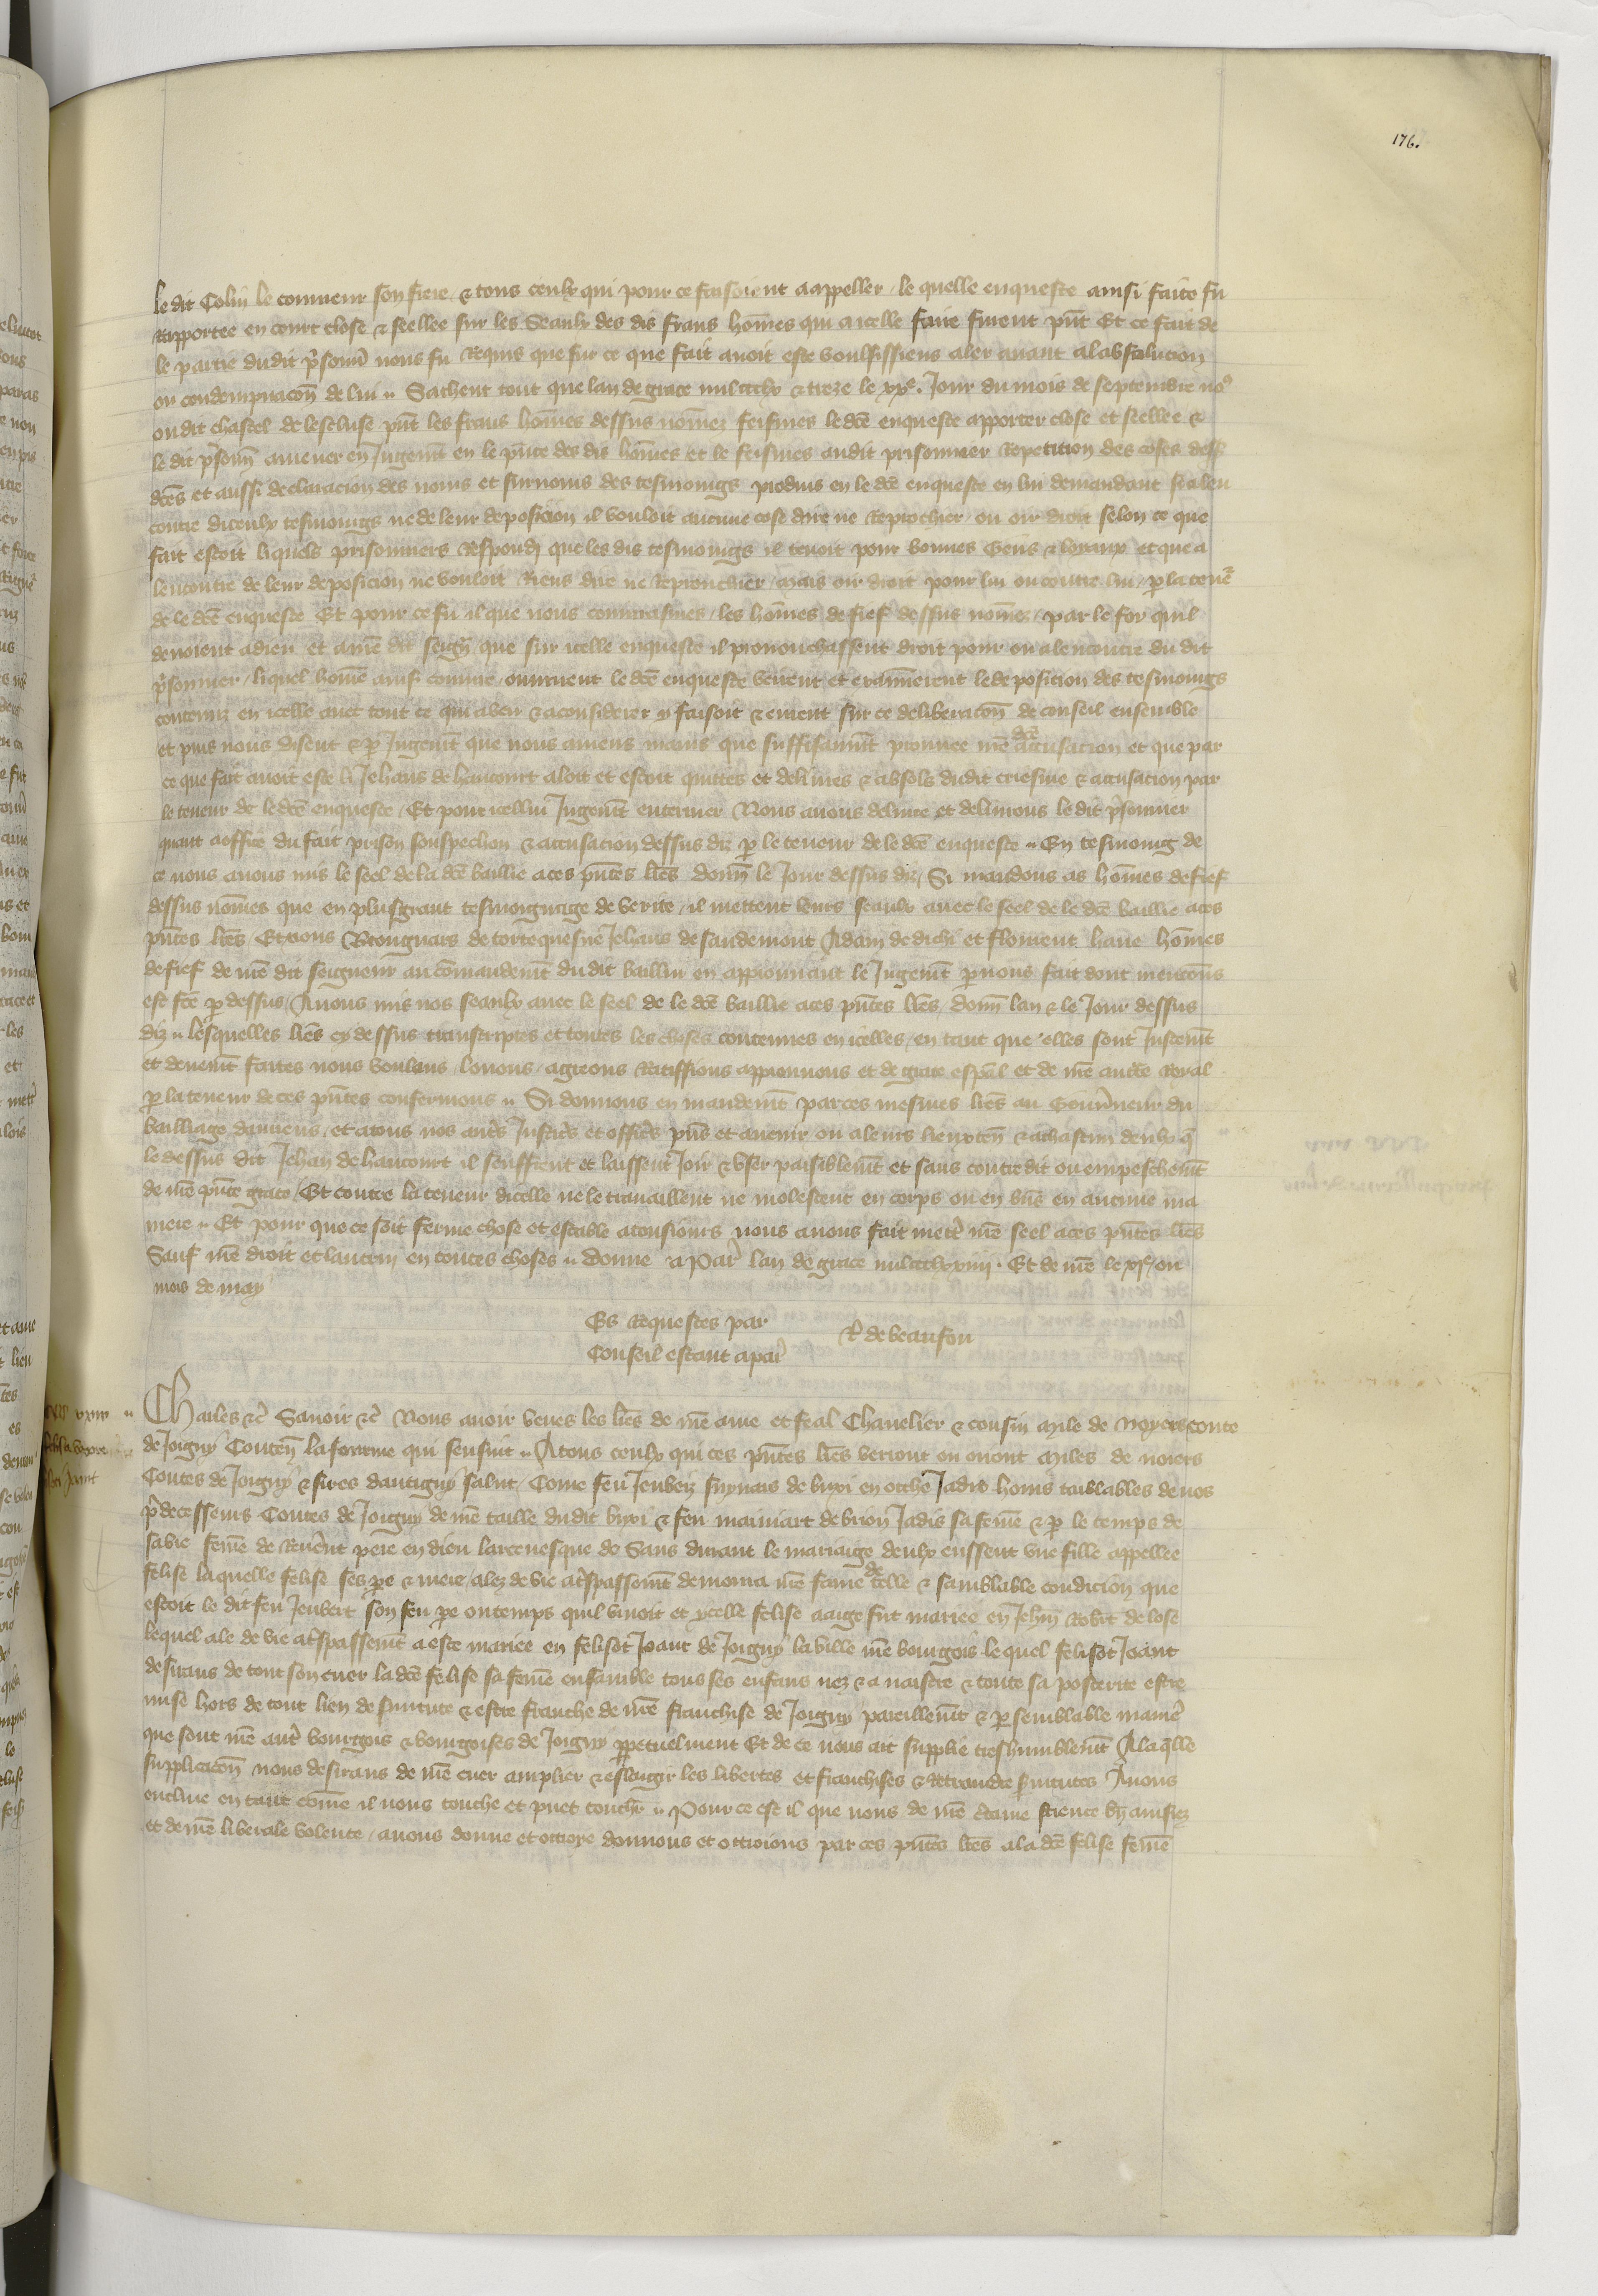 176.
le dit Colin le conveur son frere & tous ceulx qui pour ce faisoient a appeller le quelle enqueste ainsi faite fu
Rapportee en court close & seellee sur les Seaulx des dis frans hom̃es qui a icelle faire furent pñt Et ce fait de
le partie dudit p̃sonñ nous fu Requis que sur ce que fait avoit este voulsissiens aler avant al absolucion
ou condempnacoñ de lui Sachent tout que lan de grace mil ccclx & treze le xxe. Jour du mois de septembre no9
ou dit chastel de lescluse pñt les frans hom̃es dessus nom̃ez feismes le dcẽ enqueste apporter close et seellee &
le dit p̃sonñ amener en Jugemt̃ en le pñce des dis hom̃es et le feismes audit prisonnier Repetition des coses dess9
dcẽs et aussi declaracion des noms et surnoms des tesmoings produis en le dcẽ enqueste en lui demandant se a len
contre diceulx tesmoings ne de leur deposicion il vouloit aucune cose dire ne Reprochier ou oir droit selon ce que
fait estoit liquels prisonniers Respondj que les dis tesmoings il tenoit pour bonnes Gens & loyaux et que a
lencontre de leur deposicion ne vouloit Riens dire ne Reprouchier mais oir droit pour lui ou contre lui p la teneᷣ
de le dcẽ enqueste Et pour ce fu il que nous conjurasmes les hom̃es de fief dessus nom̃ez par le foy quil
devoient a dieu et a mẽ dit seigñ que sur icelle enqueste il pronouchassent droit pour ou alencontre du dit
p̃sonnier liquel hom̃e ainsi conjuré ouvrirent le dcẽ enqueste virent et examinerent le deposicion des tesmoings
contenuz en icelle avec tout ce qui a veir & a considerer y faisoit & eurent sur ce deliberacoñ de conseil ensemble
et puis nous disent & p Jugemt̃ que nous aviens mains que suffisammt̃ prouvee mẽ dcẽ accusacion et que par
ce que fait avoit este li Jehans de haucourt aloit et estoit quittes et delivres & absols dudit criesme & accusacion par
le teneur de le dcẽ enqueste Et pour icellui Jugemt̃ enteriner Nous avons delivre et delivrons le dit p̃sonnier
quant a office du fait prison souspechon & accusacion dessus diz p le teneur de le dcẽ enqueste En tesmoing de
ce nous avons mis le seel de la dcẽ baillie a ces pñtes lrẽs donñ le Jour dessus dit Si mandons as hom̃es de fief
dessus nom̃es que en plus grant tesmoignaige de verite il mettent leurs seaulx avec le seel de le dcẽ baillie a ces
pñtes lrẽs Et nous Brongnars de tortequesne Jehans de saudemont Adam de dichi et floment have hom̃es
de fief de mẽ dit seigneur au com̃andemt̃ du dit bailliu en approuvant le Jugemt̃ p nous fait dont mencoñs
est fcẽ p dessus Avons mis nos seaulx avec le seel de le dcẽ baillie a ces pñtes lrẽs donñ lan & le Jour dessus
diz Lesquelles lrẽs cy dessus transcriptes et toutes les choses contenues en icelles en tant que elles sont Justemt̃
et deuemt̃ faites nous voulans louons agreons Ratiffions approuvons et de grace espãl et de mẽ auctte Royal
p la teneur de ces pñtes confermons Si donnons en mandemt̃ par ces mesmes lrẽs au Gouvñeur du
bailliage damiens et a tous nos autr̃s Justicr̃s et officr̃s pñs et avenir ou a leurs lieuxteñ & a chascun deulx q̃
le dessus dit Jehan de haucourt il seuffrent et laissent Joir & user paisiblemt̃ et sans contredit ou empeschemt̃
de mẽ pñte grace Et contre la teneur dicelle ne le travaillent ne molestent en corps ou en biẽs en aucune ma
niere Et pour que ce soit ferme chose et estable a tousiours nous avons fait mettr̃ mẽ seel a ces pñtes lrẽs
Sauf mẽ droit et lautrui en toutes choses donne a Par̃ lan de grace mil ccclxxiiii. Et de mẽ le xje ou
mois de may
Es Requestes par
Conseil estant a par̃
R̃ de beaufou
Charles &c̃ Savoir &c̃ Nous avoir veues les lrẽs de mẽ ame et feal Chevelier & cousin Mile de Noyers conte
de Joigny Conteñ la fourme qui sensuit A tous ceulx qui ces pñtes lrẽs verront ou orront Miles de noiers
Contes de Joigny & sires dantigny salut Come feu Jeubert suynars de bixi en otthe Jadis homs taillables de nos
p̃decesseurs Contes de Joigny de mẽ taille dudit bixi & feu mainiart de brion Jadis sa fem̃e & p le temps de
sa vie fem̃e de Rever̃nt pere en dieu larcevesque de Sans durant le mariaige deulx eussent une fille appellee
felise laquelle felise ses pe & mere alez de vie a tr̃spassemt̃ demoura mẽ fame de telle & samblable condicion que
estoit le dit feu Jeubert son feu pe ou temps quil vivoit et ycelle felise a aige fut mariee en Jehñ Robt̃ de lose
lequel ale de vie a tr̃spassemt̃ a este mariee en felisot Joant de Joigny la ville mẽ bourgois lequel felisot Joant
desirans de tout son cuer la dcẽ felise sa fem̃e ensamble tous ses enfans nez & a naistre & toute sa posterite estre
mise hors de tout lien de servitute & estre franche de mẽ franchise de Joigny pareillemt̃ & p semblable manier̃
que sont mẽ autr̃ bourgois & bourgoises de Joigny ppetuelment Et de ce nous ait supplie treshumblemt̃ A laq̃lle
supplicacoñ nous desirans de mẽ cuer amplier & eslargir les libertes et franchises & Retraindre servitutes Avons
encline en tant com̃e il nous touche et puet touchr̃ Pour ce est il que nous de mẽ certaine science bñ avisiez
et de mẽ liberale volente avons donne et ottroye donnons et ottroions par ces pñtes lrẽs a la dcẽ felise fem̃e